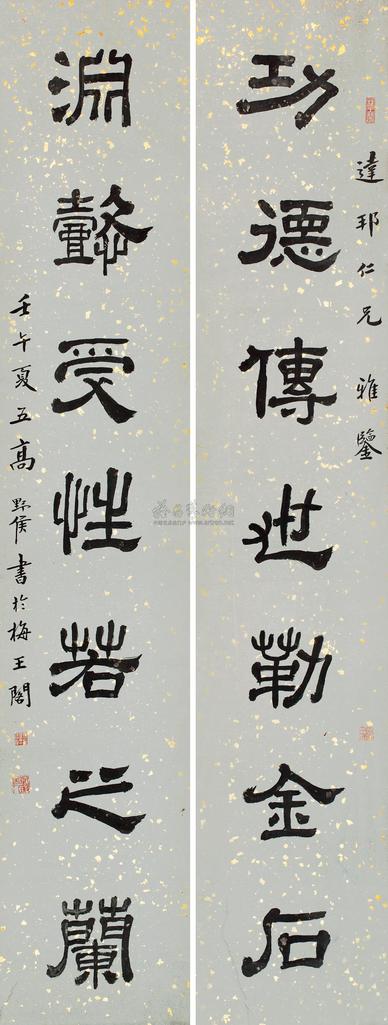 達邦仁兄 雅鑒
功德傳世勒金石
淵懿受性若芷蘭
壬午夏五高野侯書於梅王閣